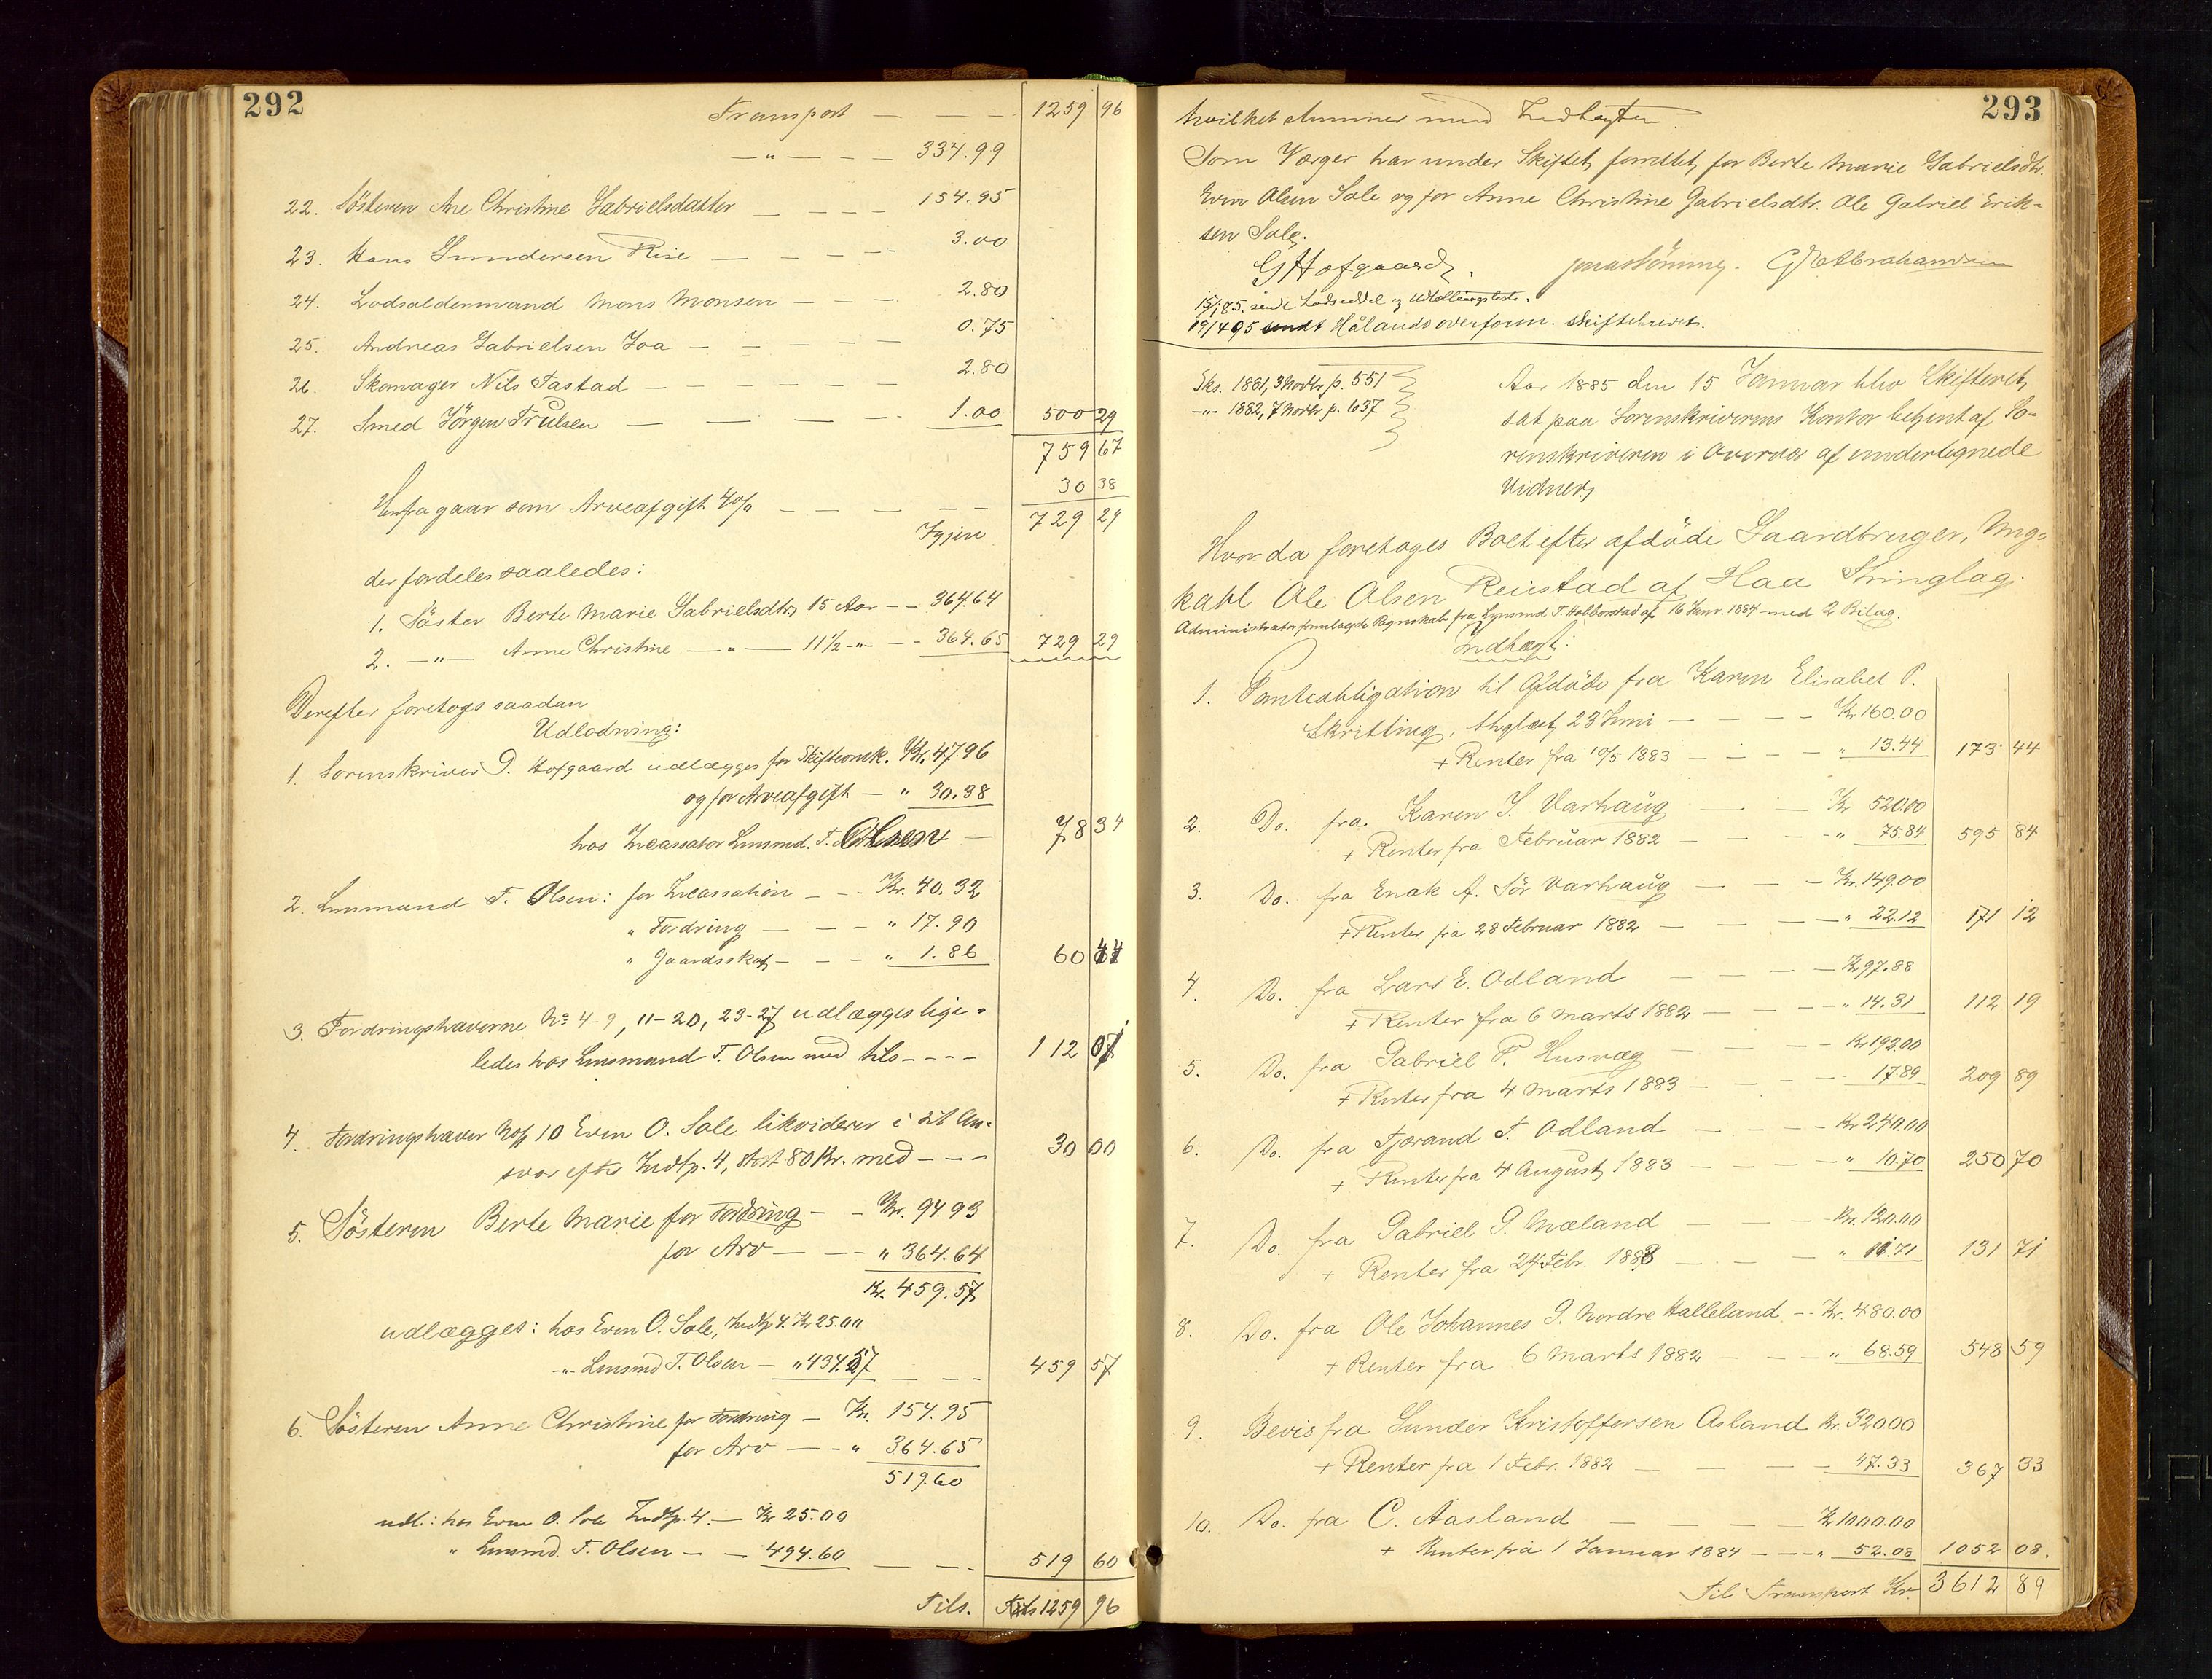 292
Transport — — — 1259 96
— " — — — 334.99
22. Søsteren Ane Christine Gabrielsdatter — — — 154.95
23. Hans Gundersen Rise — — — — 3.00
24. Lodsoldermand Mons Monsen — — — 2.80
25. Andreas Gabrielsen Joa — — — — 0.75
26. Skomager Nils Tastad — — — — — — 2.80
27. Smed Jørgen Truelsen — — — — 1.00 500 29
759 67
Herfra gaar som Arveafgift 4% — — — — — 30 38
Igjen 729 29
der fordeles saaledes:
1. Søster Berte Marie Gabrielsdtr, 15 Aar — — 364.64
2. — " — Anne Christine — " — 11½ — " — — 364.65 729 29
Derefter foretoges saadan
Udlodning:
1. Sorenskriver G. Hofgaard udlægges for Skifteomk. Kr. 47.96
og for Arveafgift — " 30.38
hos Incassator Lensmd. T. Olsen — 78 34
2. Lensmand T. Olsen: for Incassation — — Kr. 40.32
" Fordring — — — " 17.90
" Gaardsskat — — — " 1.86 60 44
3. Fordringshaverne No 4-9, 11-20, 23-27 udlægges lige-
ledes hos Lensmand T. Olsen med tils — — — 112 01
4. Fordringshaver No 10 Even O. Sole likviderer i sit An-
svar efter Indtp. 4, stort 80 Kr. med — — — 30 00
5. Søsteren Berte Marie for Fordring — — Kr. 94.93
for Arv — — — " 364.64
Kr. 459.57
udlægges: hos Even O. Sole, Indtp 4. Kr 25.00
— " — Lensmd T. Olsen — " 434.57 — — — 459 57
6. Søsteren Anne Christine for Fordring — Kr. 154.95
for Arv — — " 364.65
519.60
udl.: hos Even O. Sole Indtp. 4. — Kr 25.00
" Lensmd. T. Olsen — — 494.60 — — — 519 60
Tils. Tils 1259 96
293
hvilket stemmer med Indtægten.
Som Værger har under Skiftet forrettet, for Berte Marie Gabrielsdtr.
Even Olsen Sole og for Anne Christine Gabrielsdtr. Ole Gabriel Erik-
sen Sole.
G Hofgaard. Jonas Lønning. G E Abrahamsen
15/1 85. sendt Lodseddel og Udlodningsliste.
19/4 95 sendt Hålands overform. skiftebrevet.
Eks. 1881, 3 Novbr p. 551
— " — 1882, 7 Novbr p. 637
Aar 1885 den 15 Januar blev Skifteret,
sat paa Sorenskriverens Kontor betjent af So-
renskriveren i Overvær af undertegnede
Vidner,
Hvor da foretoges Boet efter afdøde Gaardbruger, Ung-
kahl Ole Olsen Reiestad af Haa Thinglag.
Administrator fremlagde Regnskab fra Lensmd T. Hobberstad af 16 Janr. 1884 med 2 Bilag.
Indtægt:
1. Panteobligation til Afdøde fra Karen Elisabet P.
Skritling, thglæst, 23 Juni — — — — Kr 160.00
+ Renter fra 10/5 1883 — — — — " 13.44 173 44
2. Do. fra Karen T. Varhaug — — Kr 520.00
+ Renter fra Februar 1882 — — — — " 75.84 595 84
3. Do. fra Enok A. Sør Varhaug — — — Kr. 149.00
+ Renter fra 28 Februar 1882 — — — — " 22.12 171 12
4. Do. fra Lars E. Odland — — — — Kr 97.88
+ Renter fra 6 Marts 1882 — — — — " 14.31 112 19
5. Do. fra Gabriel P. Husvæg — — — — Kr 192.00
+ Renter fra 4 Marts 1883 — — — — 17.89 209 89
6. Do. fra Tjørand T. Odland — — — — Kr 240.00
+ Renter fra 4 August, 1883 — — — — " 10.70 250 70
7. Do. fra Gabriel G. Mæland — — — — Kr. 120.00
+ Renter fra 24 Febr. 1883 — — — " 11.71 131 71
8. Do. fra Ole Johannes G. Nordre Halleland — — Kr. 480.00
+ Renter fra 6 Marts 1882 — — — " 68.59 548 59
9. Bevis fra Gunder Kristoffersen Asland Kr. 320.00
+ Renter fra 1 Febr. 1882 — — — — 47.33 367 33
10. Do. fra C. Aasland — — — — Kr 1000.00
+ Renter fra 1 Januar 1884 — — — " 52.08 1052 08.
Til Transport Kr. 3612 89